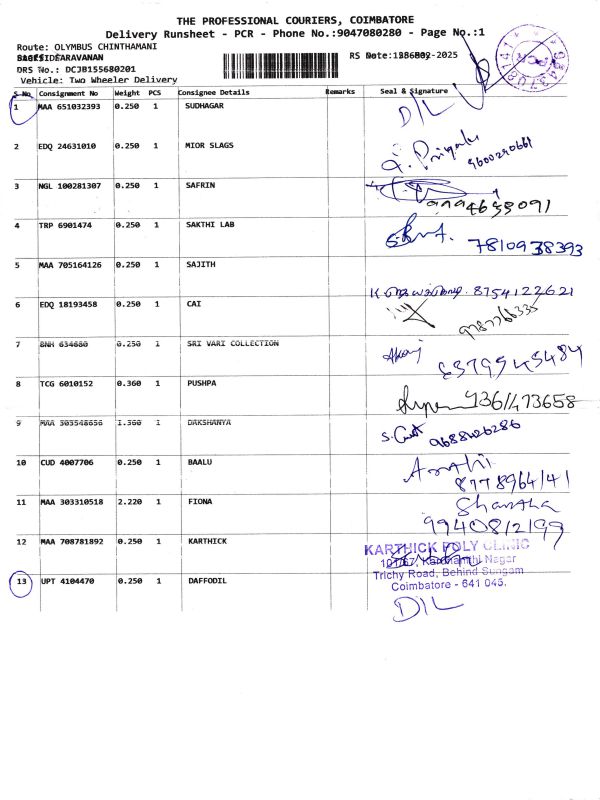 THE PROFESSIONAL COURIERS, COIMBATORE
Delivery Runsheet - PCR - Phone No.:9047080280 - Page No.:1
Route: OLYMBUS CHINTHAMANI
SARAVANAN
DRS No.: DCJB155680201
Vehicle: Two Wheeler Delivery
S No Consignment No Weight PCS Consignee Details Remarks Seal & Signature
1 MAA 651032393 0.250 1 SUDHAGAR D/L
2 EDQ 24631010 0.250 1 MIOR SLAGS 9600290661
3 NGL 100281307 0.250 1 SAFRIN
4 TRP 6901474 0.250 1 SAKTHI LAB 7810938393
5 MAA 705164126 0.250 1 SAJITH 8754122621
6 EDQ 18193458 0.250 1 CAI
7 BNH 634680 0.250 1 SRI VARI COLLECTION
8 TCG 6010152 0.360 1 PUSHPA
9 MAA 303548656 1.360 1 DAKSHANYA 9688426286
10 CUD 4007706 0.250 1 BAALU
8778964141
11 MAA 303310518 2.220 1 FIONA Shantha
9940812199
12 MAA 708781892 0.250 1 KARTHICK KARTHICK POLY CLINIC
Trichy Road, Behind Sungam
Coimbatore - 641 045.
13 UPT 4104470 0.250 1 DAFFODIL D/L